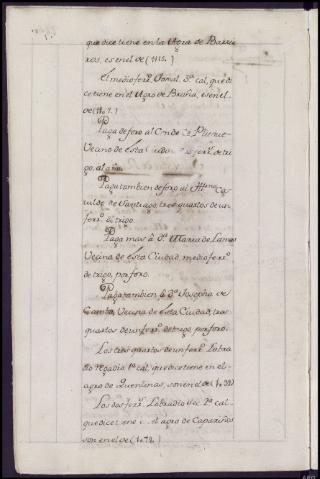 que dice tiene en la Agra de Barrei
ros, es en el de (1115.)
El medio ferr.º Jornal. 3.ª cal, que di
ce tiene en el Agro de Bruña, es en el
de (1107.)
P
Paga de foro al Conde
Vecino de esta ciudad ferr.º de tri
go, al año.
P
Paga tambien de foro al Ill.mo Ca
vildo de Santiago, tres quartos de un
ferr.º de trigo.
P
Paga mas à D.ª Maria de Lamas
Vecina de esta Ciudad medio ferr.º
de trigo, por foro.
P
Paga tambien à D.ª Josepha de
Canto, Vecina de esta Ciudad, tres
quartos de un ferr.º de trigo por foro.
Los tres quartos de un ferr.º Labra
dio regadio 1.ª cal, que dice tiene en el
agro de Quenlinas, son en el de
Los dos ferr.º Labradio 2.ª cal.
que dice tiene el agro de Capariños
son en el de (1072.)